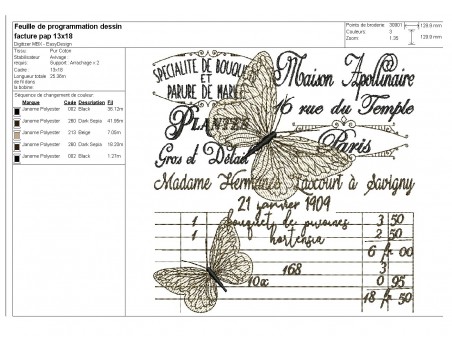 Feuille de programmation dessin
facture pap 13x18
Digitizer MBX - EasyDesign
Points de broderie: 30801
Couleurs: 3
Zoom: 1.35
129.9 mm
129.9 mm
Tissu: Pur Coton
Stabilisateur requis: Avivage
Support : Arrachage x 2
Cadre: 13x18
Longueur totale de fil dans la bobine: 25.36m
Séquence de changement de couleur:
Marque Code Description Fil
Janome Polyester 002 Black 36.12m
Janome Polyester 260 Dark Sepia 41.99m
Janome Polyester 213 Beige 7.05m
Janome Polyester 260 Dark Sepia 18.23m
Janome Polyester 002 Black 1.21m
SPECIALITE DE BOUQUETS
ET
PARURE DE MARIEE
PLANTES
Gros et Détail
Maison Apollinaire
16 rue du Temple
Paris
Madame Hermance à Savigny
21 janvier 1909
1 bouquets de pivoines 3 50
1 hortensia 2 50
6 fr 00
168 3
10x 0 95
18 fr 50